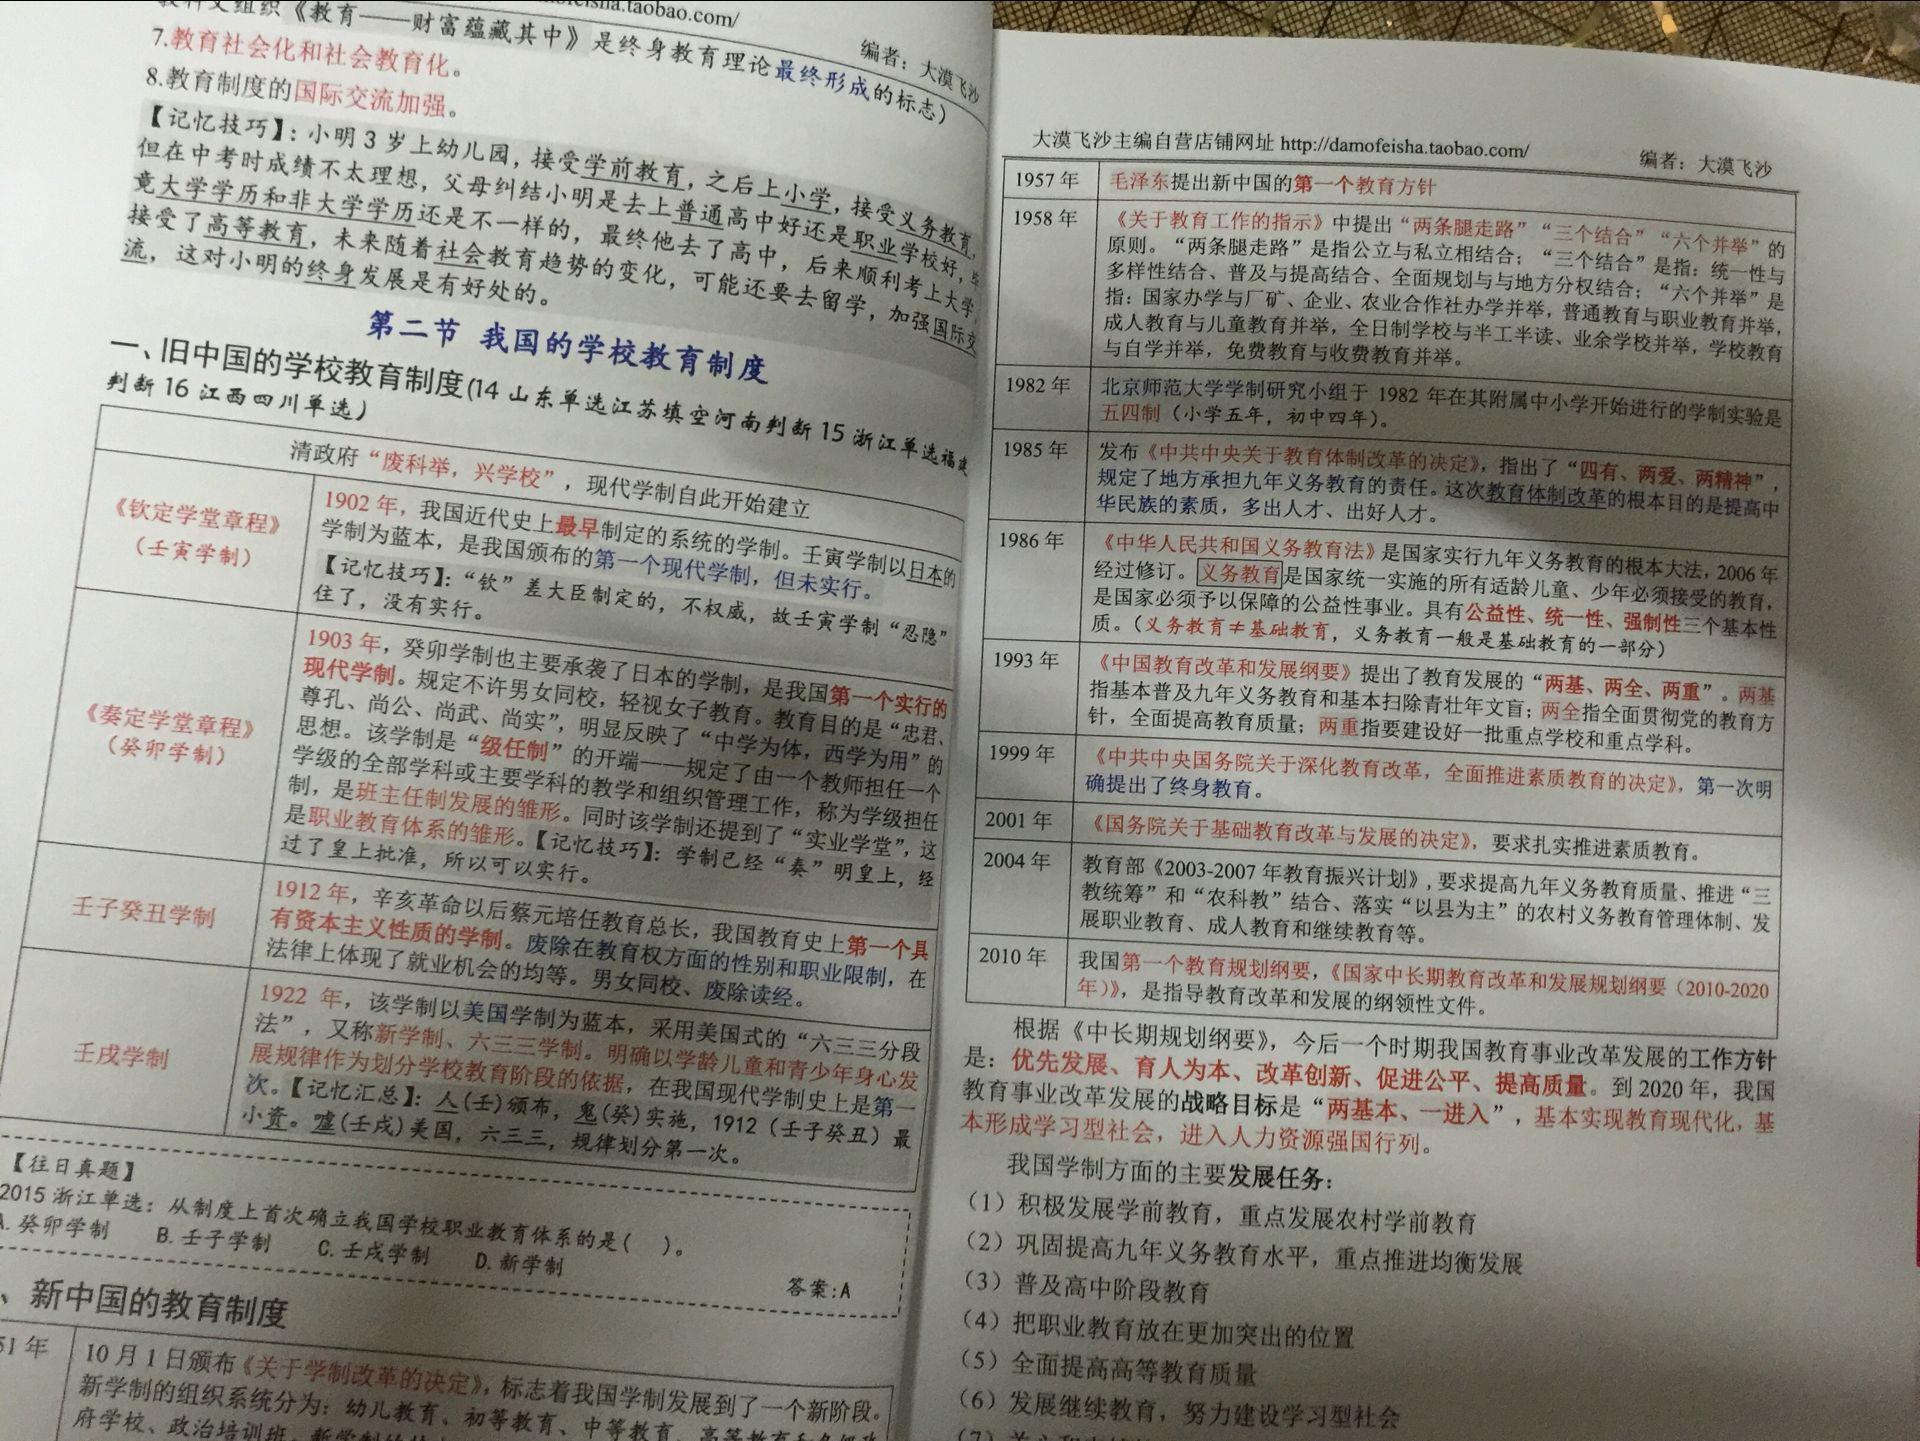 mofeisha.taobao.com/
编者：大漠飞沙
教科文组织《教育——财富蕴藏其中》是终身教育理论最终形成的标志）
7.教育社会化和社会教育化。
8.教育制度的国际交流加强。
【记忆技巧】：小明3岁上幼儿园，接受学前教育，之后上小学，接受义务教育，
但在中考时成绩不太理想，父母纠结小明是去上普通高中好还是职业学校好，毕
竟大学学历和非大学学历还是不一样的，最终他去了高中，后来顺利考上大学，
接受了高等教育，未来随着社会教育趋势的变化，可能还要去留学，加强国际交
流，这对小明的终身发展是有好处的。
第二节 我国的学校教育制度
一、旧中国的学校教育制度(14山东单选江苏填空河南判断15浙江单选福建
判断16江西四川单选)
清政府“废科举，兴学校”，现代学制自此开始建立
《钦定学堂章程》
（壬寅学制）
1902年，我国近代史上最早制定的系统的学制。壬寅学制以日本的
学制为蓝本，是我国颁布的第一个现代学制，但未实行。
【记忆技巧】：“钦”差大臣制定的，不权威，故壬寅学制“忍隐”
住了，没有实行。
《奏定学堂章程》
（癸卯学制）
1903年，癸卯学制也主要承袭了日本的学制，是我国第一个实行的
现代学制。规定不许男女同校，轻视女子教育。教育目的是“忠君、
尊孔、尚公、尚武、尚实”，明显反映了“中学为体，西学为用”的
思想。该学制是“级任制”的开端——规定了由一个教师担任一个
学级的全部学科或主要学科的教学和组织管理工作，称为学级担任
制，是班主任制发展的雏形。同时该学制还提到了“实业学堂”，这
是职业教育体系的雏形。【记忆技巧】：学制已经“奏”明皇上，经
过了皇上批准，所以可以实行。
壬子癸丑学制
1912年，辛亥革命以后蔡元培任教育总长，我国教育史上第一个具
有资本主义性质的学制。废除在教育权方面的性别和职业限制，在
法律上体现了就业机会的均等。男女同校、废除读经。
壬戌学制
1922年，该学制以美国学制为蓝本，采用美国式的“六三三分段
法”，又称新学制、六三三学制。明确以学龄儿童和青少年身心发
展规律作为划分学校教育阶段的依据，在我国现代学制史上是第一
次。【记忆汇总】：人(壬)颁布，鬼(癸)实施，1912（壬子癸丑）最
小资。嘘(壬戌)美国，六三三，规律划分第一次。
【往日真题】
2015浙江单选：从制度上首次确立我国学校职业教育体系的是(  )。
A.癸卯学制 B.壬子学制 C.壬戌学制 D.新学制
答案:A
、新中国的教育制度
51年
10月1日颁布《关于学制改革的决定》，标志着我国学制发展到了一个新阶段。
新学制的组织系统分为：幼儿教育、初等教育、中等教育、高等教育和各级政
府学校、政治培训班。
大漠飞沙主编自营店铺网址 http://damofeisha.taobao.com/ 编者：大漠飞沙
1957年 毛泽东提出新中国的第一个教育方针
1958年 《关于教育工作的指示》中提出“两条腿走路”“三个结合”“六个并举”的
原则。“两条腿走路”是指公立与私立相结合；“三个结合”是指：统一性与
多样性结合、普及与提高结合、全面规划与与地方分权结合；“六个并举”是
指：国家办学与厂矿、企业、农业合作社办学并举，普通教育与职业教育并举，
成人教育与儿童教育并举，全日制学校与半工半读、业余学校并举，学校教育
与自学并举，免费教育与收费教育并举。
1982年 北京师范大学学制研究小组于1982年在其附属中小学开始进行的学制实验是
五四制（小学五年，初中四年）。
1985年 发布《中共中央关于教育体制改革的决定》，指出了“四有、两爱、两精神”，
规定了地方承担九年义务教育的责任。这次教育体制改革的根本目的是提高中
华民族的素质，多出人才、出好人才。
1986年 《中华人民共和国义务教育法》是国家实行九年义务教育的根本大法，2006年
经过修订。义务教育是国家统一实施的所有适龄儿童、少年必须接受的教育，
是国家必须予以保障的公益性事业。具有公益性、统一性、强制性三个基本性
质。（义务教育≠基础教育，义务教育一般是基础教育的一部分）
1993年 《中国教育改革和发展纲要》提出了教育发展的“两基、两全、两重”。两基
指基本普及九年义务教育和基本扫除青壮年文盲；两全指全面贯彻党的教育方
针，全面提高教育质量；两重指要建设好一批重点学校和重点学科。
1999年 《中共中央国务院关于深化教育改革，全面推进素质教育的决定》，第一次明
确提出了终身教育。
2001年 《国务院关于基础教育改革与发展的决定》，要求扎实推进素质教育。
2004年 教育部《2003-2007年教育振兴计划》，要求提高九年义务教育质量、推进“三
教统筹”和“农科教”结合、落实“以县为主”的农村义务教育管理体制、发
展职业教育、成人教育和继续教育等。
2010年 我国第一个教育规划纲要，《国家中长期教育改革和发展规划纲要（2010-2020
年）》，是指导教育改革和发展的纲领性文件。
根据《中长期规划纲要》，今后一个时期我国教育事业改革发展的工作方针
是：优先发展、育人为本、改革创新、促进公平、提高质量。到2020年，我国
教育事业改革发展的战略目标是“两基本、一进入”，基本实现教育现代化，基
本形成学习型社会，进入人力资源强国行列。
我国学制方面的主要发展任务：
（1）积极发展学前教育，重点发展农村学前教育
（2）巩固提高九年义务教育水平，重点推进均衡发展
（3）普及高中阶段教育
（4）把职业教育放在更加突出的位置
（5）全面提高高等教育质量
（6）发展继续教育，努力建设学习型社会